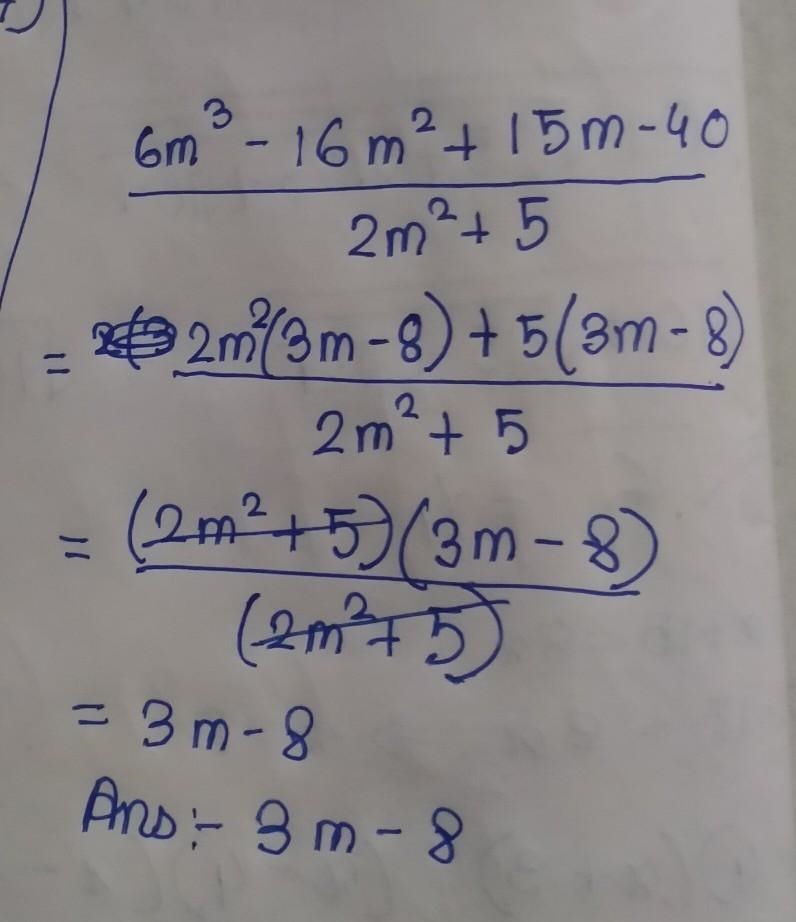 6m³ - 16m² + 15m - 40
2m² + 5
= 2m²(3m - 8) + 5(3m - 8)
2m² + 5
= (2m² + 5)(3m - 8)
(2m² + 5)
= 3m - 8
Ans :- 3m - 8